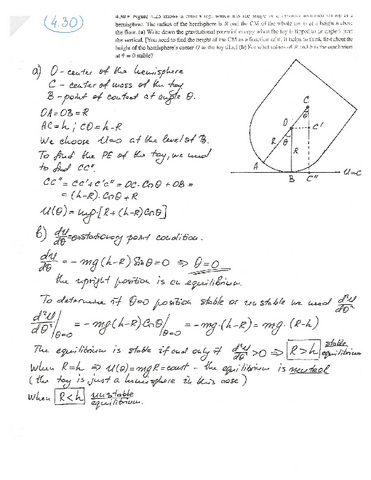 (4.30)
4.30 Figure 4.25 shows a child's toy, which has the shape of a cylinder mounted on top of a
hemisphere. The radius of the hemisphere is R and the CM of the whole toy is at a height h above
the floor. (a) Write down the gravitational potential energy when the toy is tipped to an angle θ from
the vertical. [You need to find the height of the CM as a function of θ. It helps to think first about the
height of the hemisphere's center O as the toy tilts.] (b) For what values of R and h is the equilibrium
at θ = 0 stable?
a) O - center of the hemisphere
C - center of mass of the toy
B - point of contact at angle θ.
OA = OB = R
AC = h ; CO = h-R
We choose U=0 at the level of B.
To find the PE of the toy, we need
to find CC".
CC" = CC' + C'C" = OC · Cosθ + OB =
= (h-R) · Cosθ + R
U(θ) = mg · [R + (h-R) Cosθ]
C
O
C'
R
R
θ
A
B
C"
U=0
b) dU/dθ = 0 stationary point condition.
dU/dθ = -mg (h-R) Sinθ = 0 ⇒ θ = 0
the upright position is an equilibrium.
To determine if θ=0 position stable or unstable we need d²U/dθ²
d²U/dθ² |θ=0 = -mg (h-R) Cosθ |θ=0 = -mg · (h-R) = mg · (R-h)
The equilibrium is stable if and only if d²U/dθ² > 0 ⇒ R > h stable equilibrium
When R = h ⇒ U(θ) = mgR = const - the equilibrium is neutral
(the toy is just a hemisphere in this case)
When R < h unstable equilibrium.